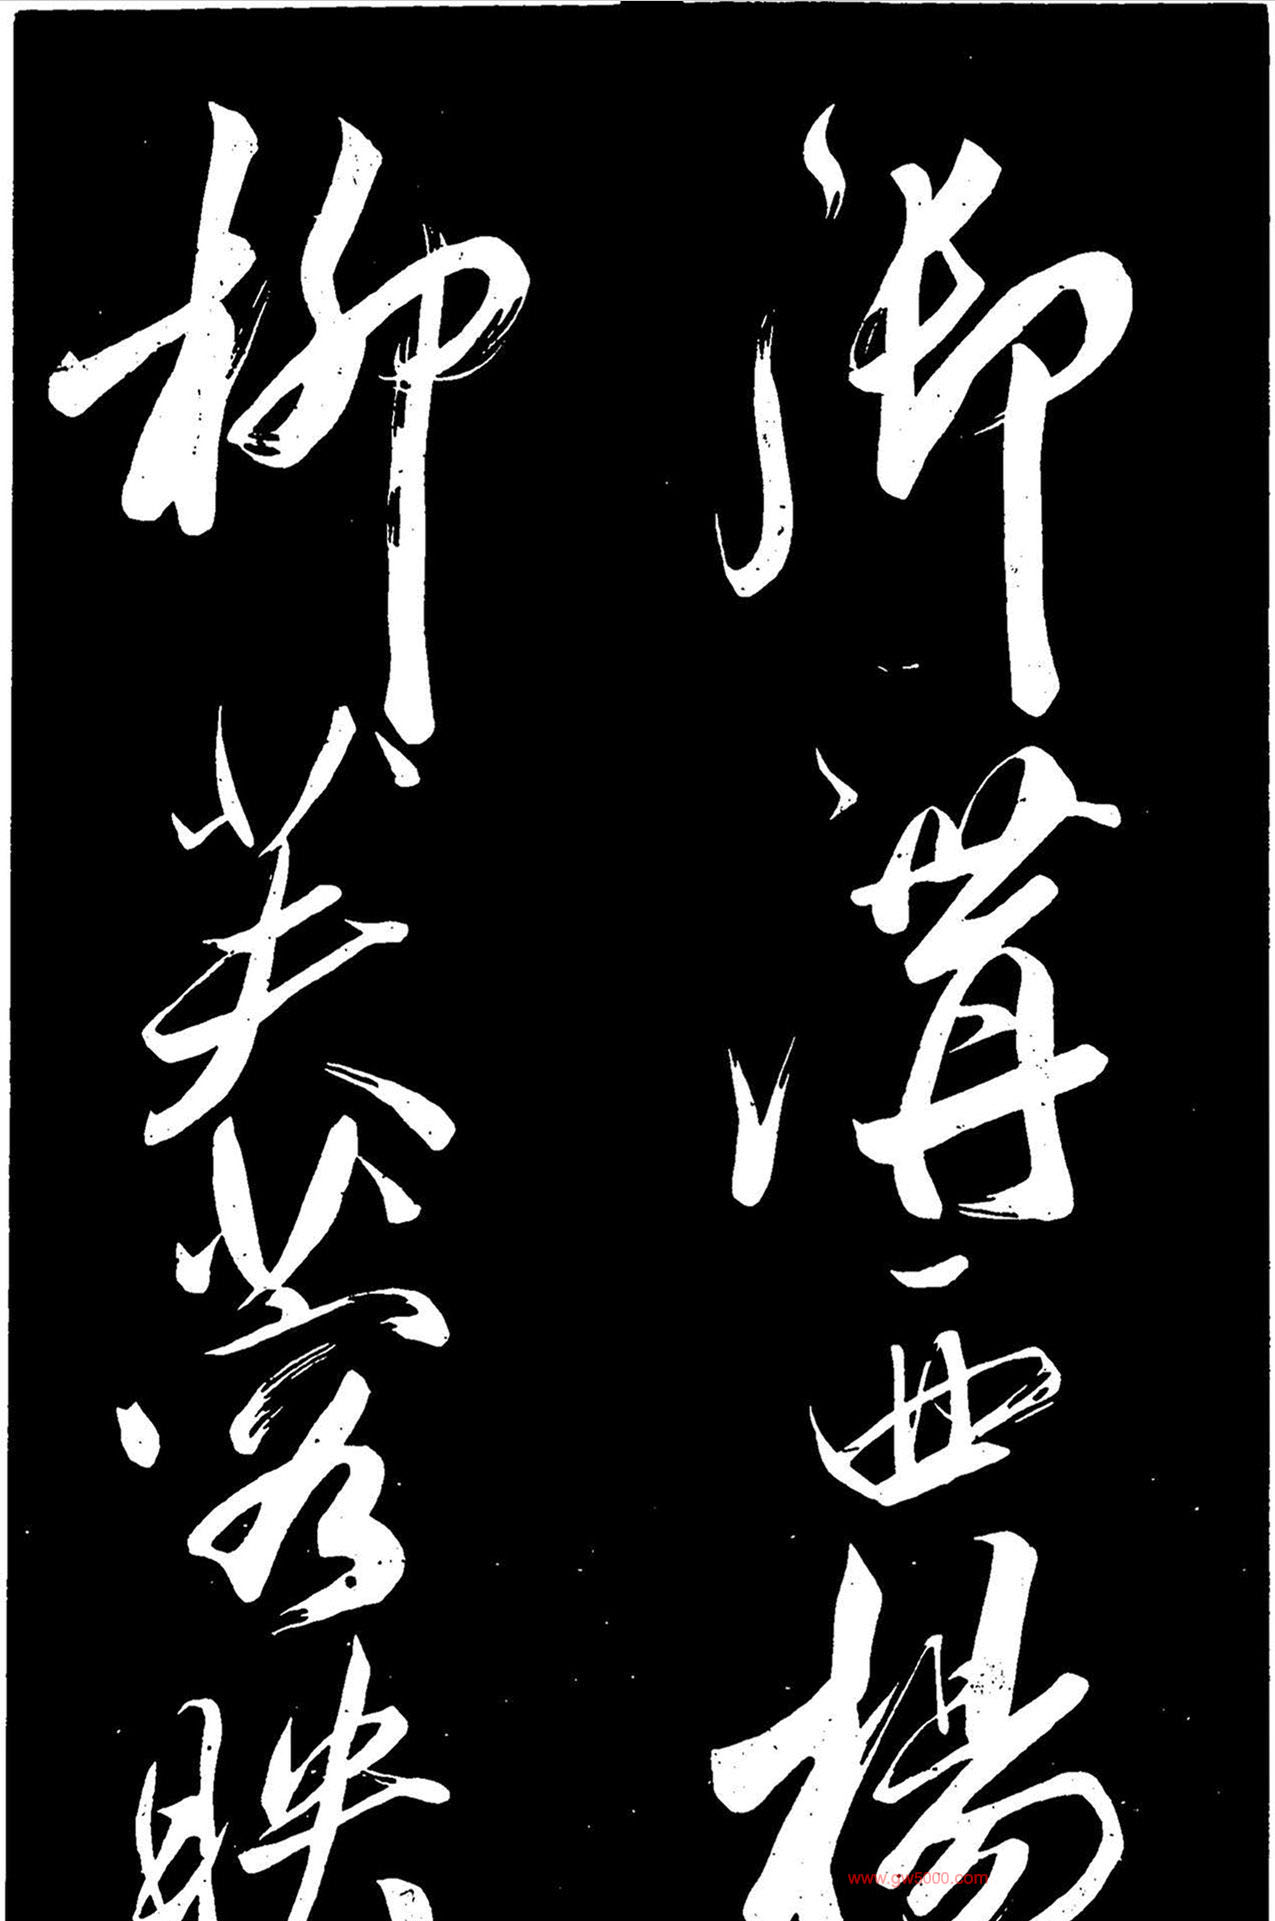 御溝西楊
柳芙蓉映
www.gw5000.com